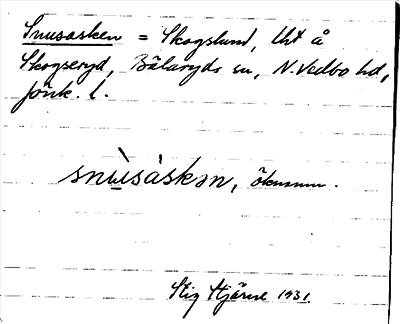 Snusasken = Skogslund, lht å
Skogseryd, Bälaryds sn, N. Vedbo hd,
Jönk. l.
snùsàskən, öknamn.
Stig Stjärne 1931.